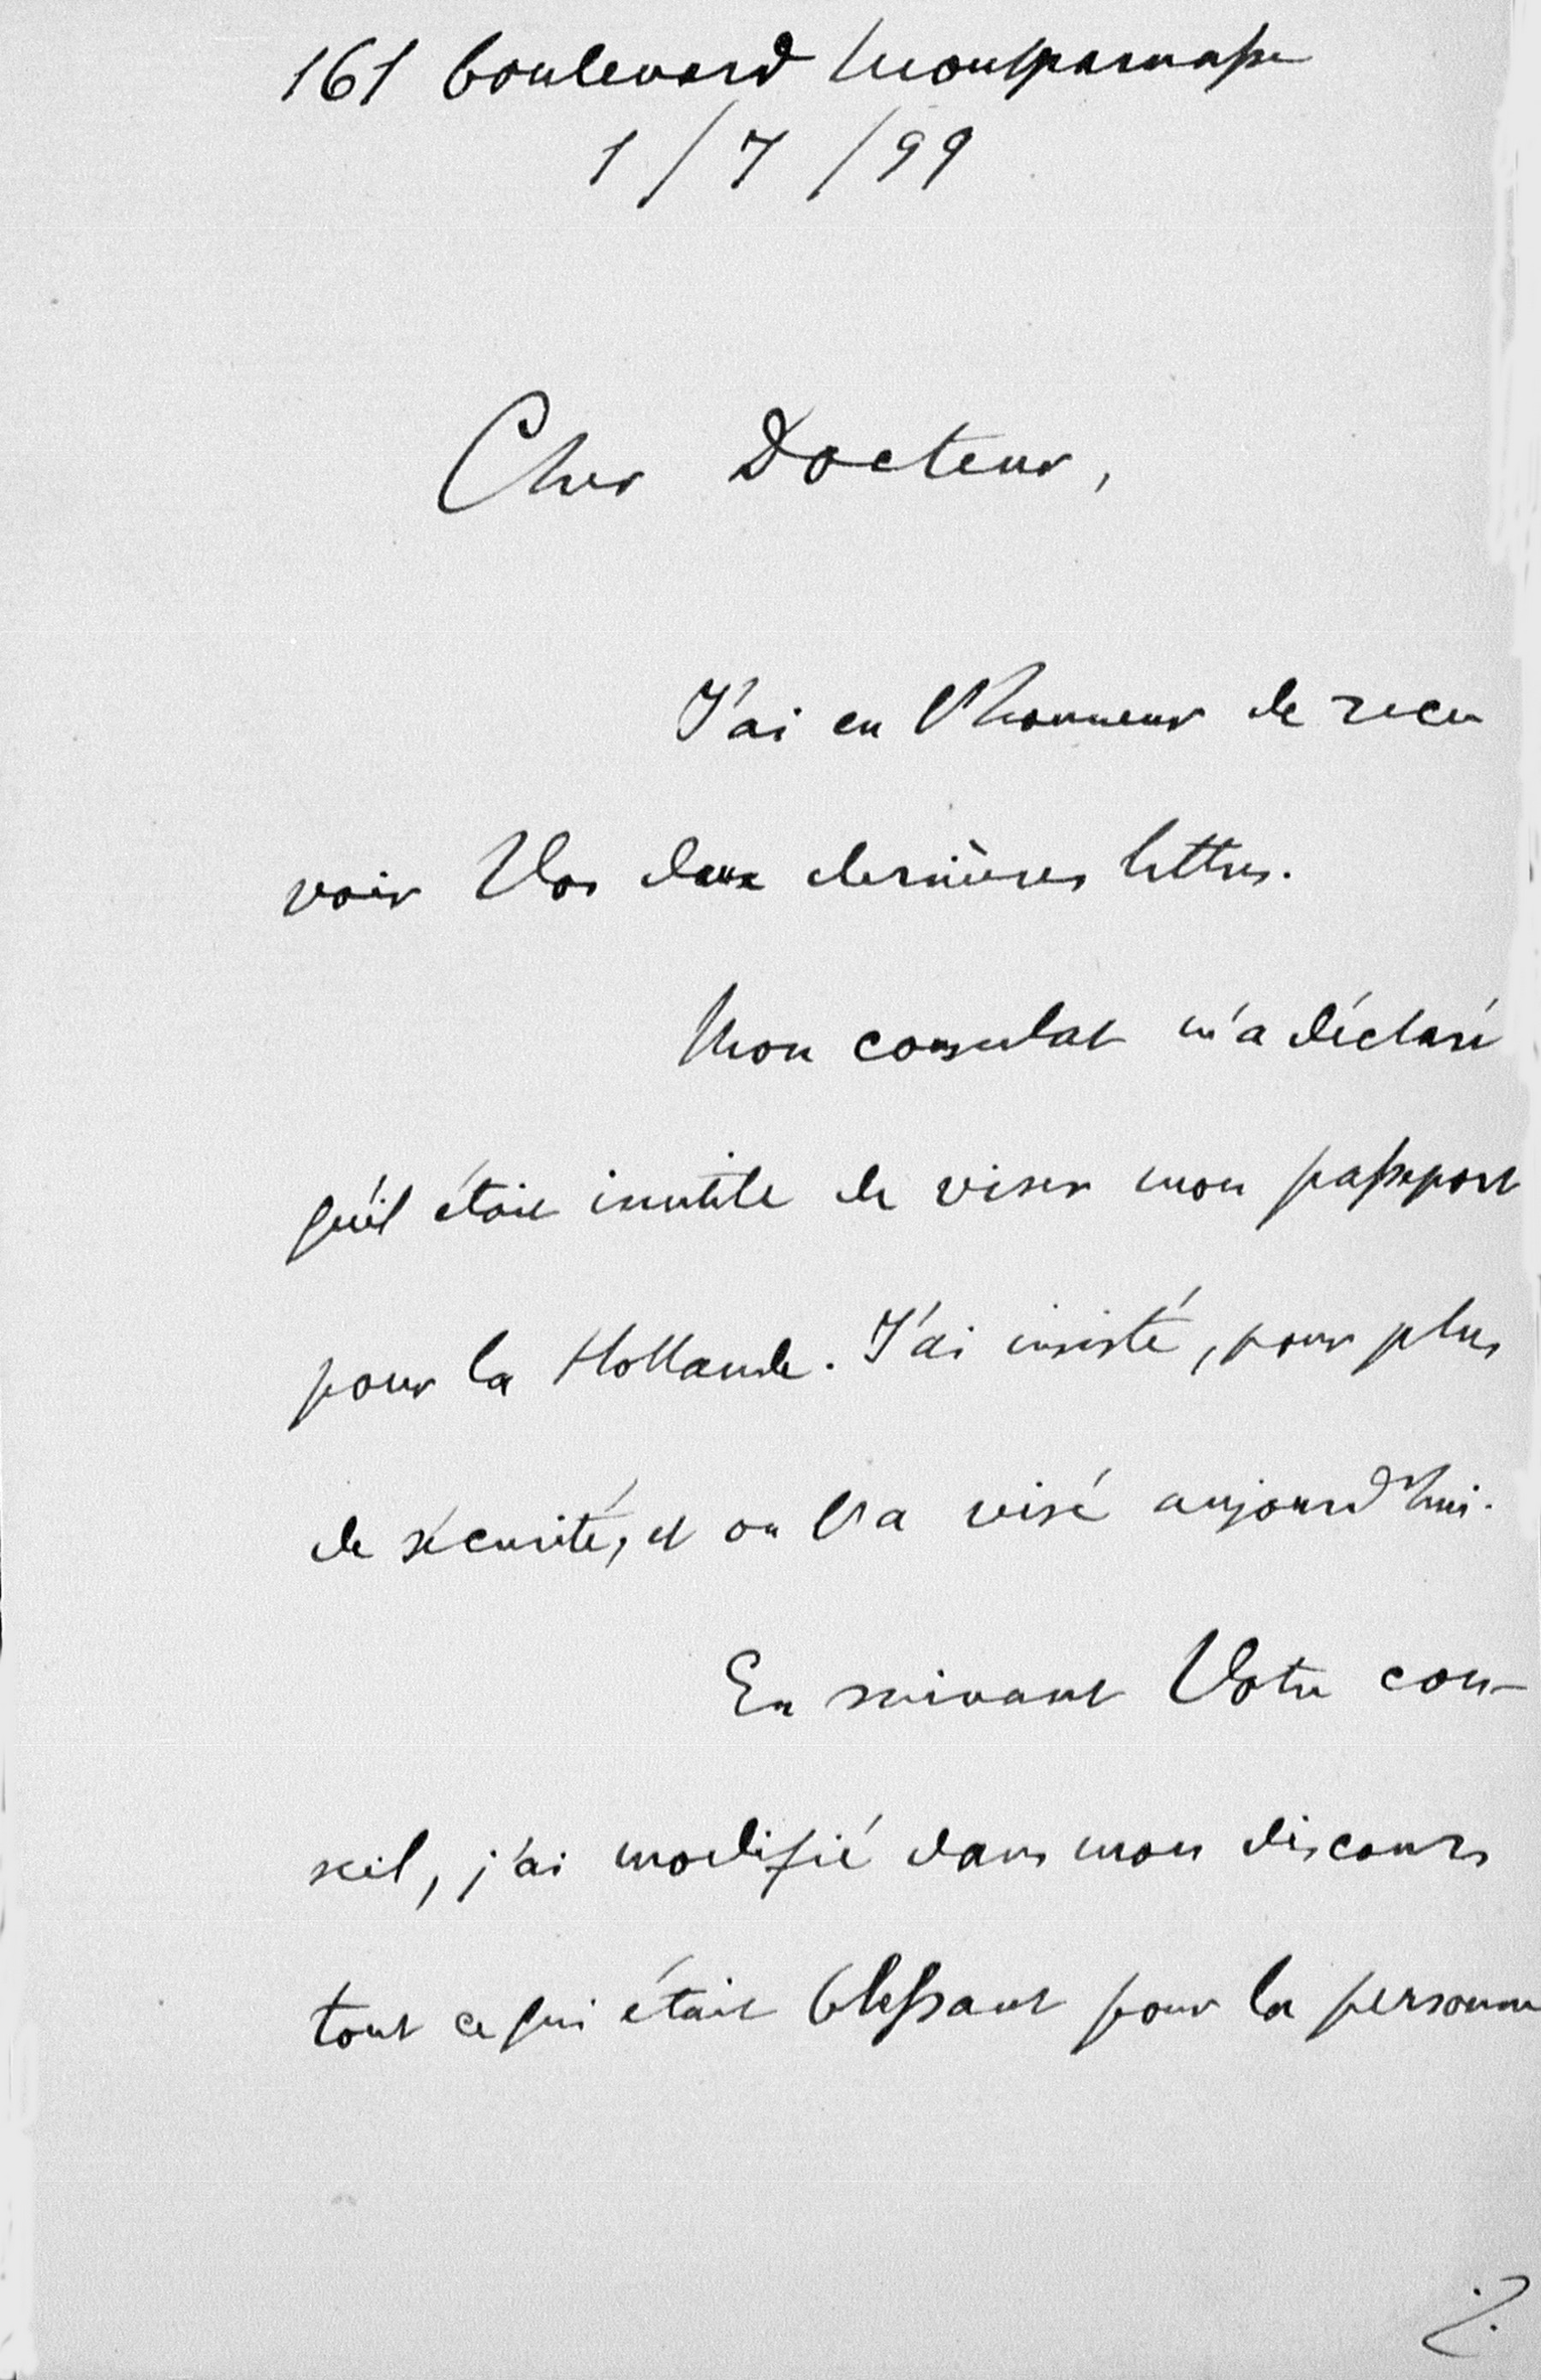 161 boulevard Montparnasse
1/7/99
Cher Docteur,
J'ai eu l'honneur de rece
voir Vos deux dernières lettres.
Mon consulat m'a déclaré
qu'il était inutile de viser mon passeport
pour la Hollande. J'ai insisté, pour plus
de sécurité, et on l'a visé aujourd'hui.
En suivant Votre con-
seil, j'ai modifié dans mon discours
tout ce qui était blessant pour la personne